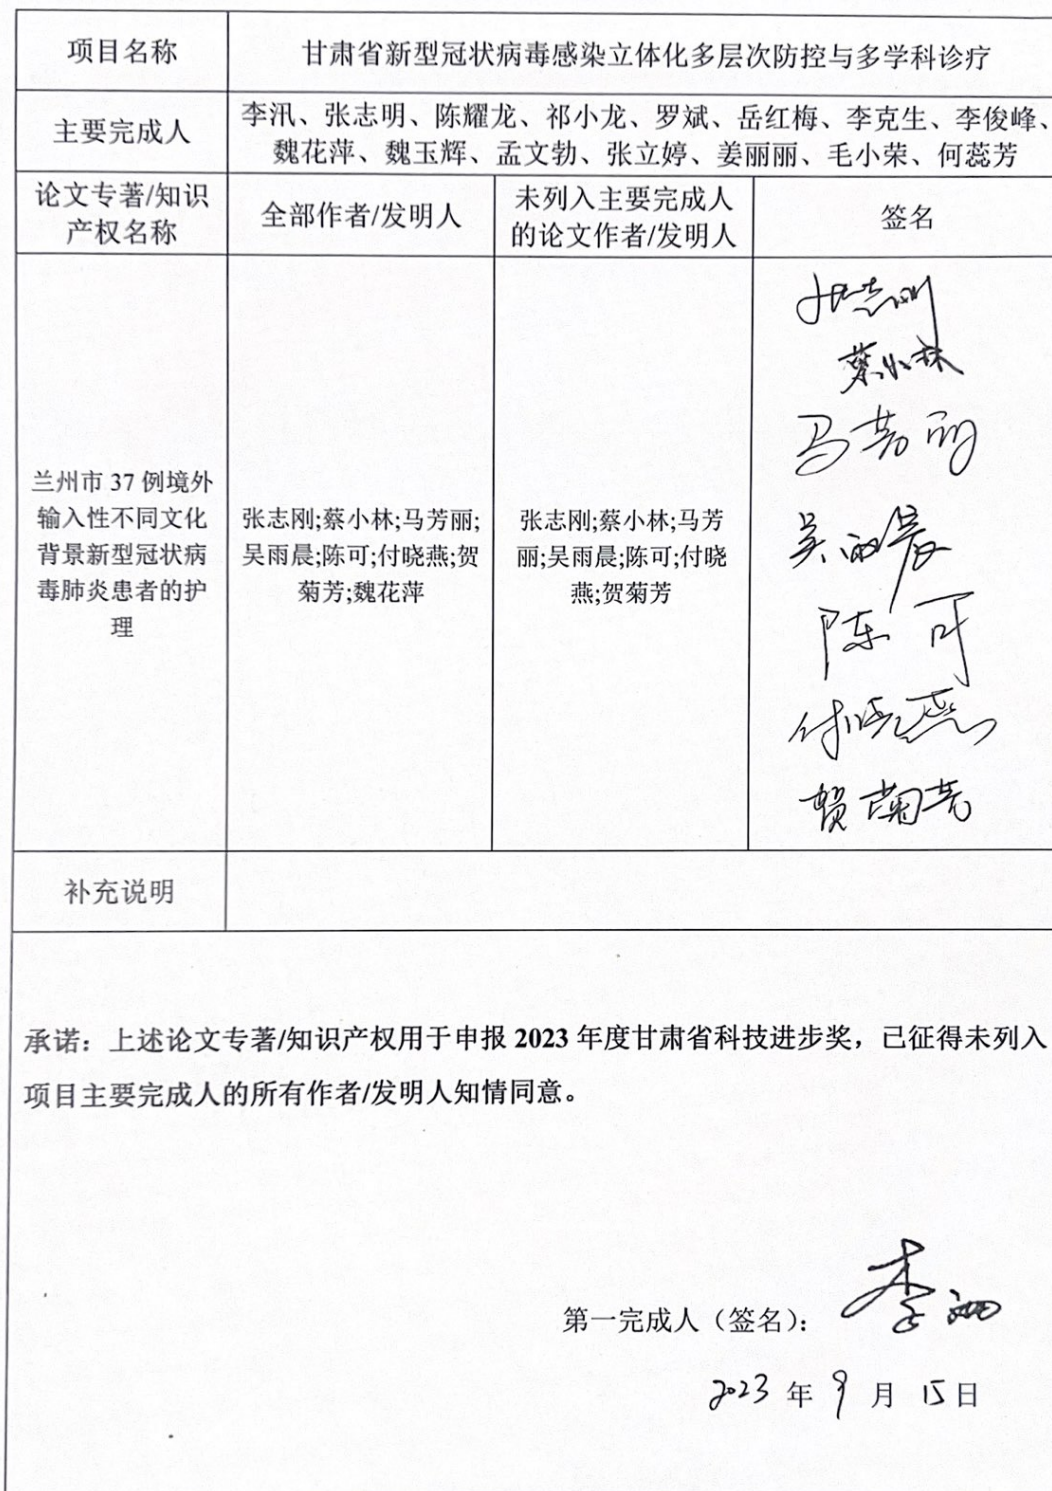 项目名称
甘肃省新型冠状病毒感染立体化多层次防控与多学科诊疗
主要完成人
李汛、张志明、陈耀龙、祁小龙、罗斌、岳红梅、李克生、李俊峰、
魏花萍、魏玉辉、孟文勃、张立婷、姜丽丽、毛小荣、何蕊芳
论文专著/知识
产权名称
全部作者/发明人
未列入主要完成人
的论文作者/发明人
签名
兰州市 37 例境外
输入性不同文化
背景新型冠状病
毒肺炎患者的护
理
张志刚;蔡小林;马芳丽;
吴雨晨;陈可;付晓燕;贺
菊芳;魏花萍
张志刚;蔡小林;马芳
丽;吴雨晨;陈可;付晓
燕;贺菊芳
张志刚
蔡小林
马芳丽
吴雨晨
陈可
付晓燕
贺菊芳
补充说明
承诺：上述论文专著/知识产权用于申报 2023 年度甘肃省科技进步奖，已征得未列入
项目主要完成人的所有作者/发明人知情同意。
第一完成人（签名）： 李汛
2023 年 9 月 15 日